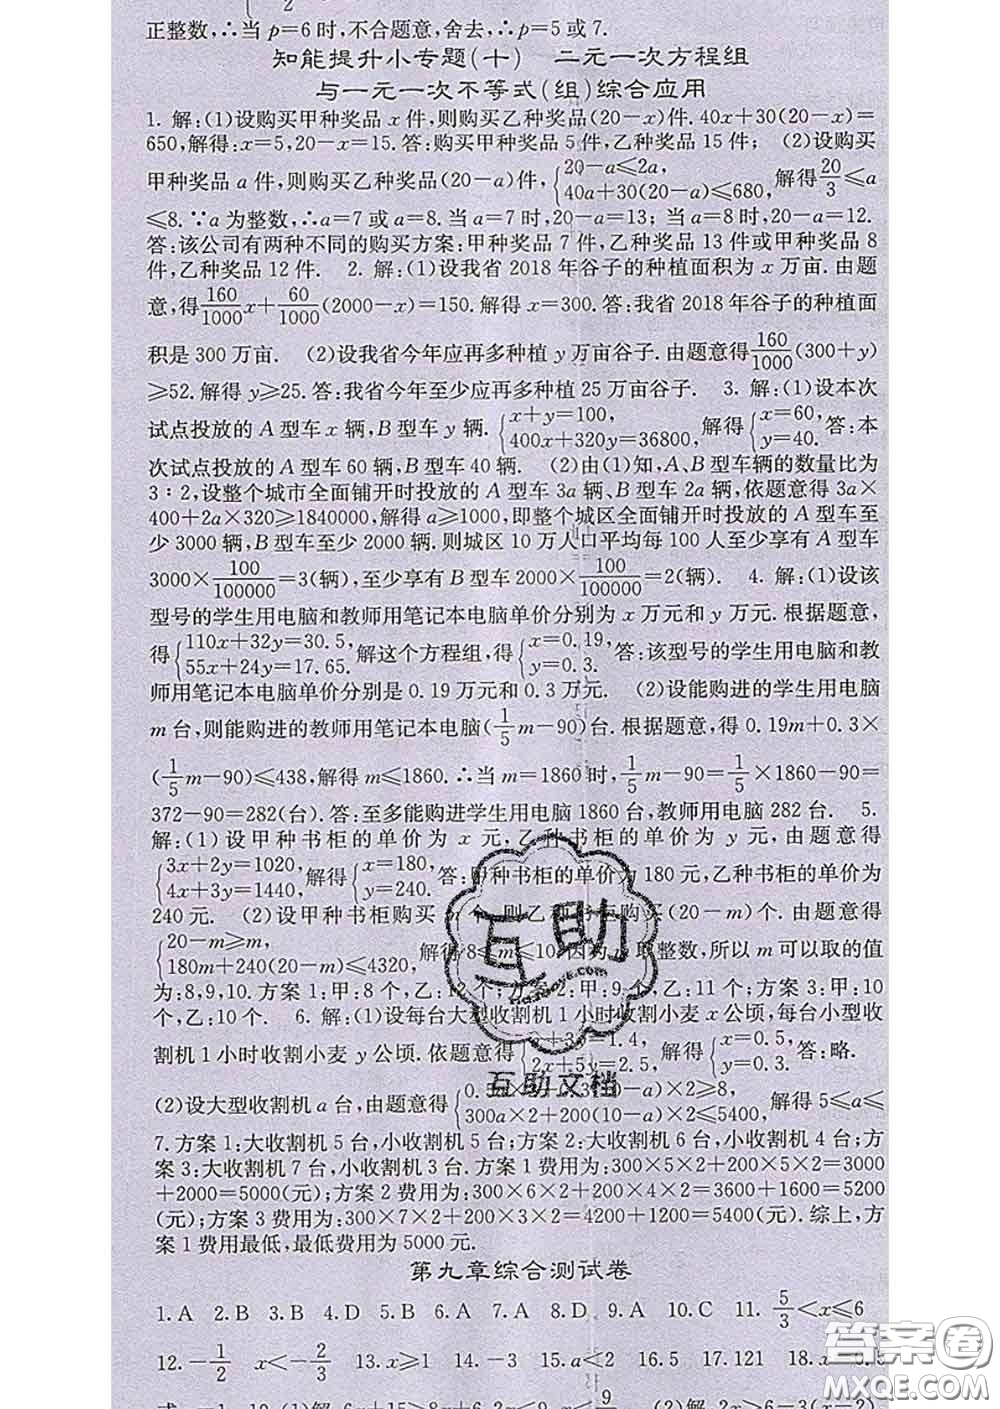 正整数,∴当 p=6 时,不合题意,舍去,∴p=5 或 7.
知能提升小专题(十) 二元一次方程组
与一元一次不等式(组)综合应用
1. 解:(1)设购买甲种奖品 x 件,则购买乙种奖品(20-x)件. 40x+30(20-x)=
650,解得:x=5,20-x=15. 答:购买甲种奖品 5 件,乙种奖品 15 件; (2)设购买
甲种奖品 a 件,则购买乙种奖品(20-a)件,{20-a≤2a, 40a+30(20-a)≤680, 解得20/3≤a
≤8. ∵a 为整数,∴a=7 或 a=8. 当 a=7 时,20-a=13; 当 a=8 时,20-a=12.
答:该公司有两种不同的购买方案:甲种奖品 7 件,乙种奖品 13 件或甲种奖品 8
件,乙种奖品 12 件. 2. 解:(1)设我省 2018 年谷子的种植面积为 x 万亩. 由题
意,得160/1000x+60/1000(2000-x)=150. 解得 x=300. 答:我省 2018 年谷子的种植面
积是 300 万亩. (2)设我省今年应再多种植 y 万亩谷子. 由题意得160/1000(300+y)
≥52. 解得 y≥25. 答:我省今年至少应再多种植 25 万亩谷子. 3. 解:(1)设本次
试点投放的 A 型车 x 辆,B 型车 y 辆. {x+y=100, 400x+320y=36800, 解得{x=60, y=40. 答:本
次试点投放的 A 型车 60 辆,B 型车 40 辆. (2)由(1)知,A、B 型车辆的数量比为
3∶2,设整个城市全面铺开时投放的 A 型车 3a 辆、B 型车 2a 辆,依题意得 3a×
400+2a×320≥1840000,解得 a≥1000,即整个城区全面铺开时投放的 A 型车至
少 3000 辆,B 型车至少 2000 辆. 则城区 10 万人口平均每 100 人至少享有 A 型车
3000×100/100000=3(辆),至少享有 B 型车 2000×100/100000=2(辆). 4. 解:(1)设该
型号的学生用电脑和教师用笔记本电脑单价分别为 x 万元和 y 万元. 根据题意,
得{110x+32y=30.5, 55x+24y=17.65. 解这个方程组,得{x=0.19, y=0.3. 答:该型号的学生用电脑和教
师用笔记本电脑单价分别是 0.19 万元和 0.3 万元. (2)设能购进的学生用电脑
m 台,则能购进的教师用笔记本电脑(1/5m-90)台. 根据题意,得 0.19m+0.3×
(1/5m-90)≤438,解得 m≤1860. ∴当 m=1860 时,1/5m-90=1/5×1860-90=
372-90=282(台). 答:至多能购进学生用电脑 1860 台,教师用电脑 282 台. 5.
解:(1)设甲种书柜的单价为 x 元,乙种书柜的单价为 y 元,由题意得
{3x+2y=1020, 4x+3y=1440, 解得{x=180, y=240. 答:甲种书柜的单价为 180 元,乙种书柜的单价为
240 元. (2)设甲种书柜购买 m 个,则乙种书柜购买(20-m)个. 由题意得
{20-m≥m, 180m+240(20-m)≤4320, 解得 8≤m≤10. 因为 m 取整数,所以 m 可以取的值
为:8,9,10. 方案 1:甲:8 个,乙:12 个;方案 2:甲:9 个,乙:11 个;方案 3:甲:10
个,乙:10 个. 6. 解:(1)设每台大型收割机 1 小时收割小麦 x 公顷,每台小型收
割机 1 小时收割小麦 y 公顷. 依题意得{x+3y=1.4, 2x+5y=2.5, 解得{x=0.5, y=0.3. 答:略.
(2)设大型收割机 a 台,由题意得{0.5a×2+0.3(10-a)×2≥8, 300a×2+200(10-a)×2≤5400, 解得 5≤a≤
7. 方案 1:大收割机 5 台,小收割机 5 台;方案 2:大收割机 6 台,小收割机 4 台;方
案 3:大收割机 7 台,小收割机 3 台. 方案 1 费用为:300×5×2+200×5×2=3000
+2000=5000(元);方案 2 费用为:300×6×2+200×4×2=3600+1600=5200
(元);方案 3 费用为:300×7×2+200×3×2=4200+1200=5400(元). 综上,方
案 1 费用最低,最低费用为 5000 元.
第九章综合测试卷
1. A 2. B 3. B 4. D 5. B 6. A 7. A 8. D 9. A 10. C 11. 5/3<x≤6
12. -1/2 x<-2/3 13. x≥1 14. -3 15. a<2 16. 5 17. 121 18. x=0.5
互助
互助文档
答案圈
MXQE.COM